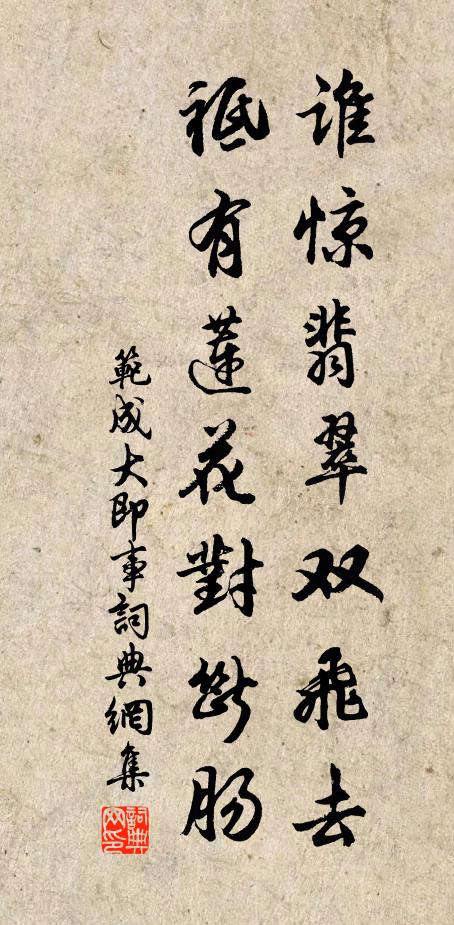 谁惊翡翠双飛去
祗有蓮花對断肠
範成大即事詞典網集
詞典网印